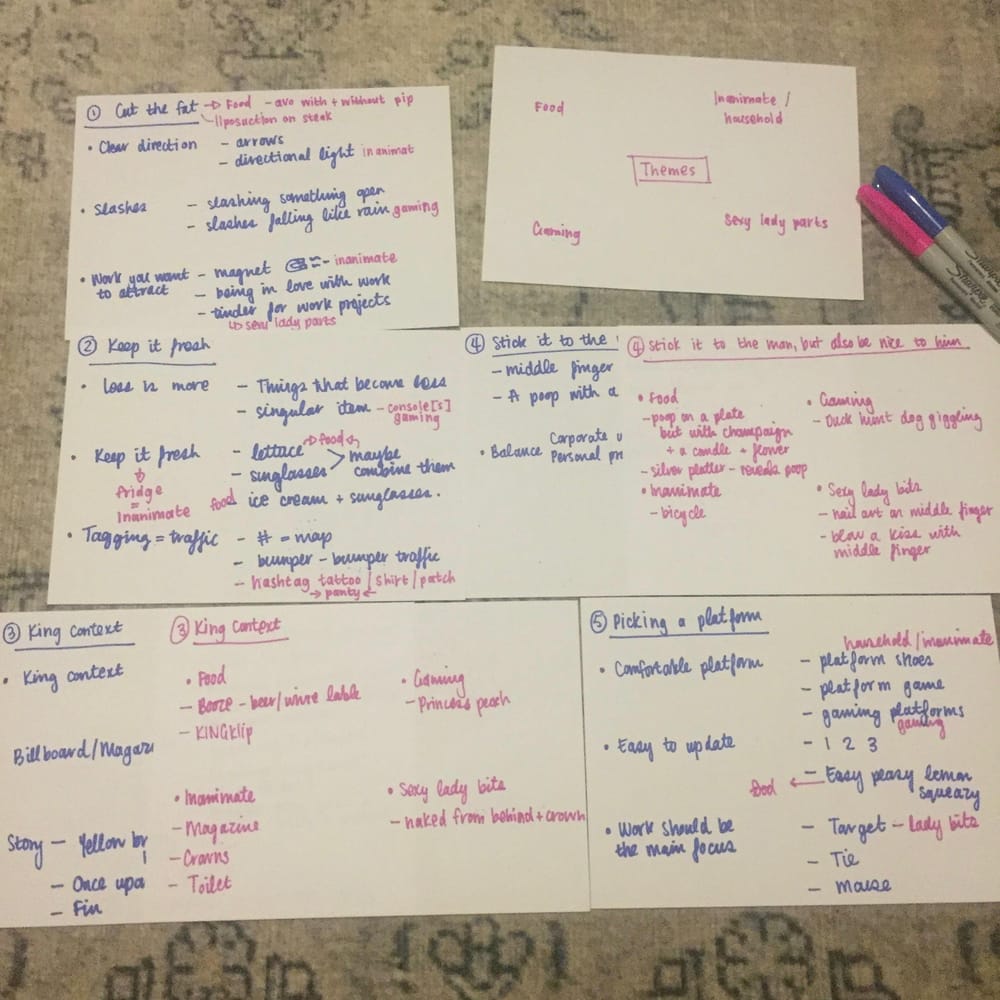 ① Cut the fat → Food - avo with + without pip
- liposuction on steak
• Clear direction - arrows
- directional light inanimat
• Slashes - slashing something open
- slashes falling like rain gaming
• Work you want to attract - magnet - inanimate
- being in love with work
- tinder for work projects
↳ sexy lady parts
Food
Inanimate /
household
Themes
Gaming
Sexy lady parts
Sharpie
② Keep it fresh
• Less is more - Things that become less
- singular item - console[s]
gaming
• Keep it fresh - lettace → food
- sunglasses > maybe
combine them
↓
fridge
=
Inanimate
food ice cream + sunglasses.
• Tagging = traffic - # = map
- bumper - bumper traffic
- hashtag tattoo / shirt / patch
→ panty ←
④ Stick it to the
- middle finger
- A poop with a
Corporate
• Balance Personal
④ Stick it to the man, but also be nice to him
• Food
- poop on a plate
but with champaign
+ a candle + flower
- silver platter - reveals poop
• Inanimate
- bicycle
• Gaming
- Duck hunt dog giggling
• Sexy lady bits
- nail art on middle finger
- blow a kiss with
middle finger
③ King context
• King context
Billboard/Magazi
Story - Yellow br
- Once upa
- Fin
③ King context
• Food
- Booze - beer/wine lable
- KINGklip
• Gaming
- Princess peach
• Inanimate
- Magazine
- Crowns
- Toilet
• Sexy lady bits
- naked from behind + crown
⑤ Picking a platform
household/inanimate
• Comfortable platform - platform shoes
- platform game
- gaming platforms
gaming
• Easy to update - 1 2 3
food ← - Easy peasy lemon
squeazy
• Work should be
the main focus
- Target - lady bits
- Tie
- mouse